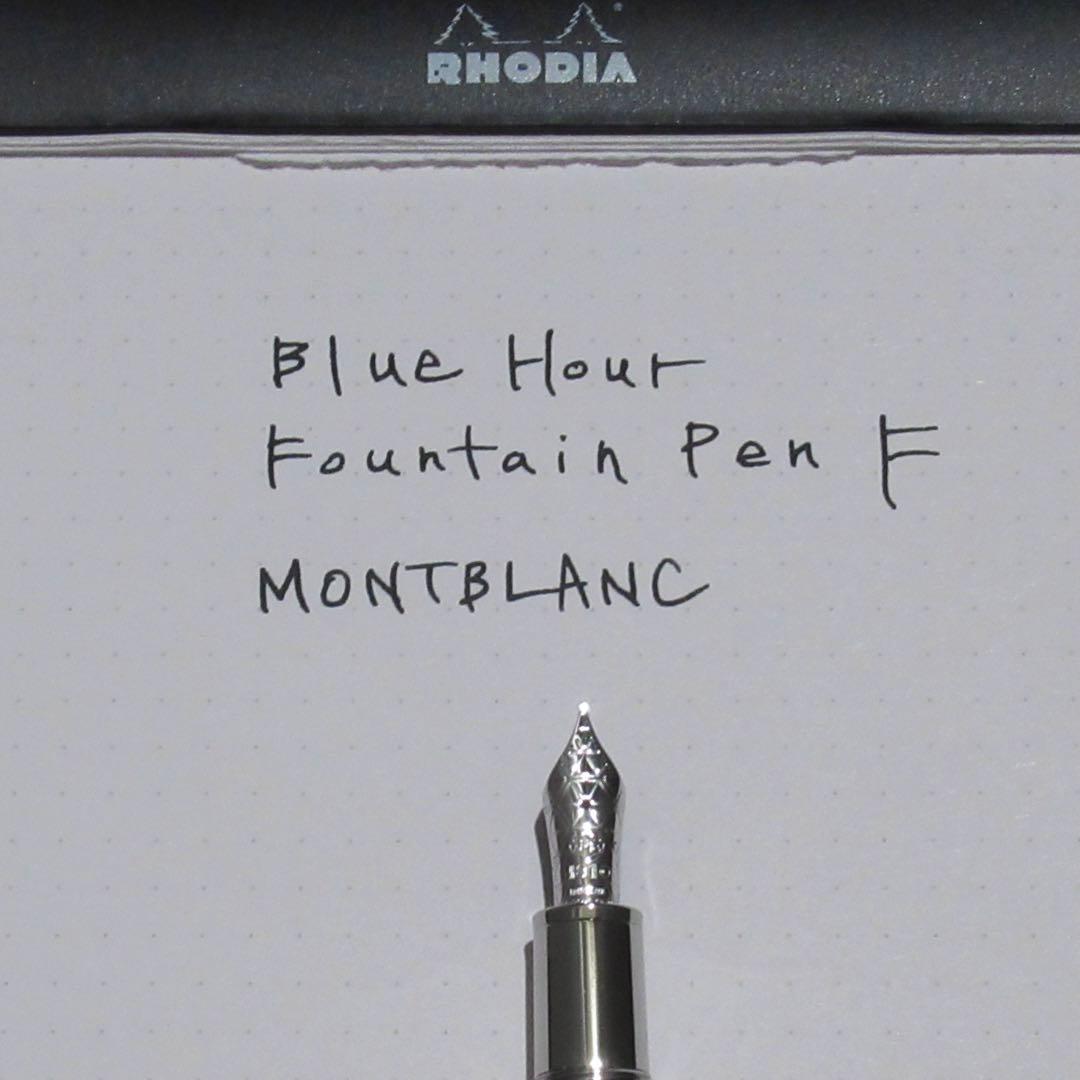 RHODIA
Blue Hour
Fountain Pen F
MONTBLANC